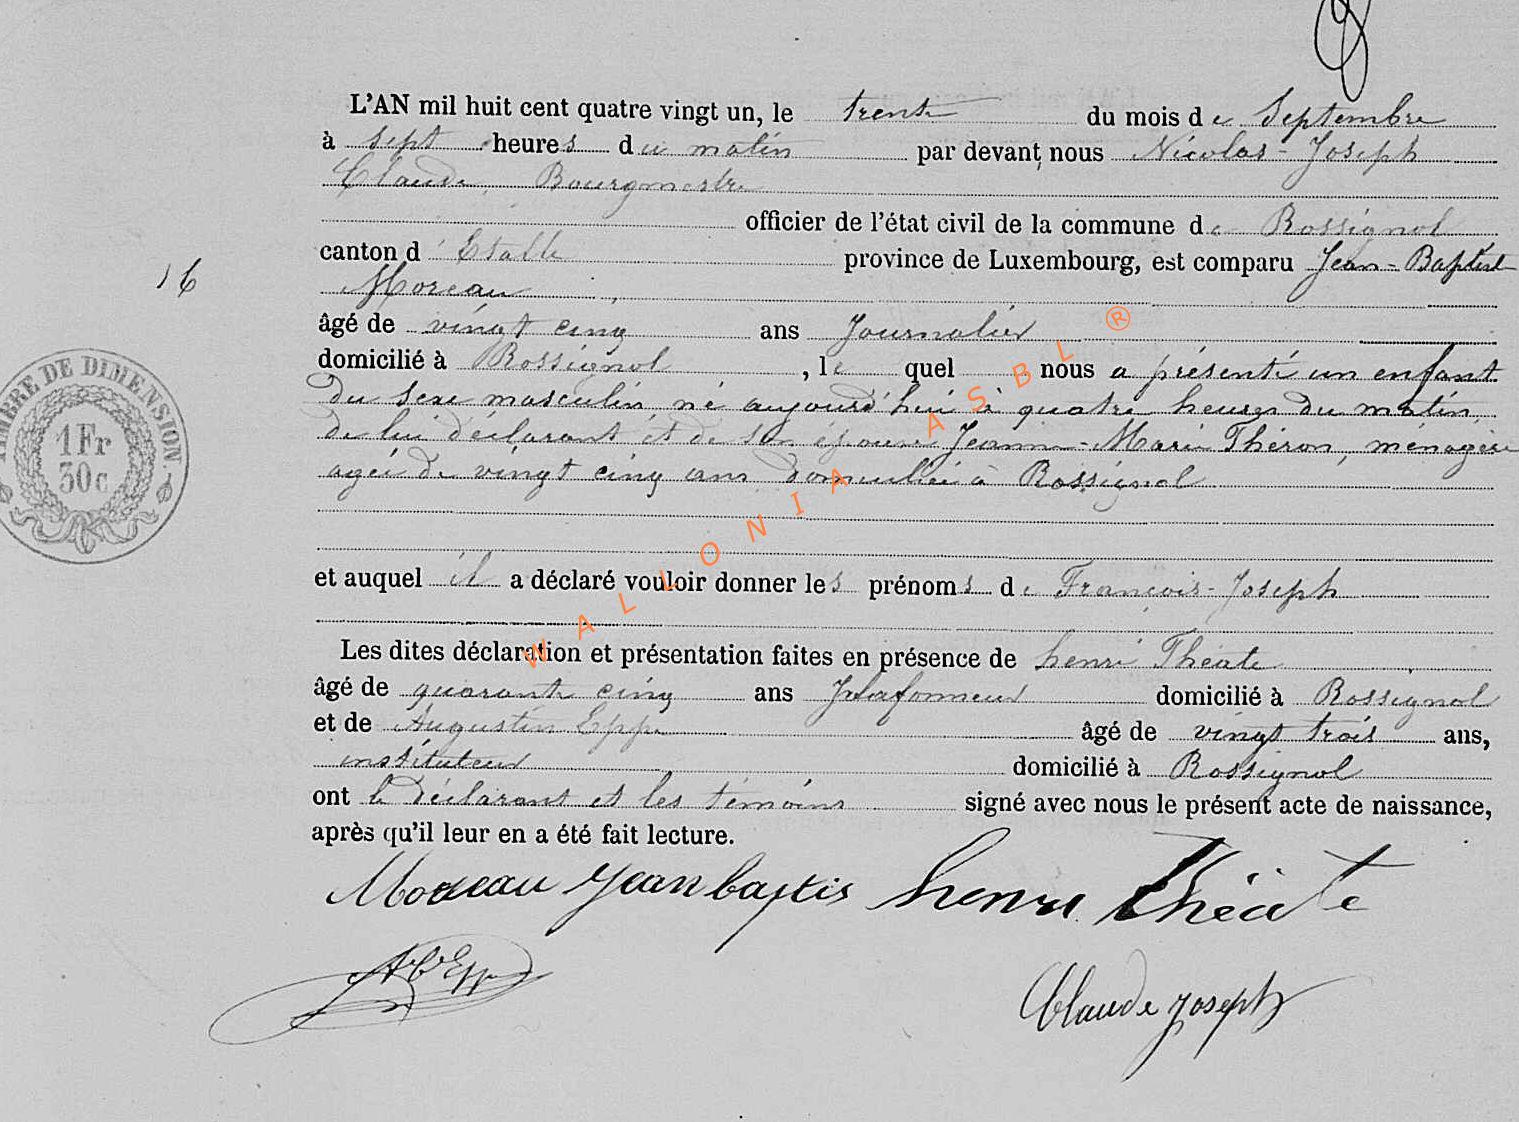 L'AN mil huit cent quatre vingt un, le trente du mois de Septembre
à sept heures du matin par devant nous Nicolas-Joseph
Claude, Bourgmestre
officier de l'état civil de la commune de Rossignol
canton d'Etalle province de Luxembourg, est comparu Jean-Baptiste
Moreau
16
âgé de vingt cinq ans Journalier
domicilié à Rossignol, lequel nous a présenté un enfant
du sexe masculin, né aujourd'hui à quatre heures du matin,
de lui déclarant et de son épouse Jeanne-Marie Théron, ménagère
agée de vingt cinq ans domiciliée à Rossignol
TIMBRE DE DIMENSION.
1 Fr
30c
et auquel il a déclaré vouloir donner les prénoms de François-Joseph
Les dites déclaration et présentation faites en présence de henri Théate
âgé de quarante cinq ans Plafonneur domicilié à Rossignol
et de Augustin Eppe âgé de vingt trois ans,
instituteur domicilié à Rossignol
ont le déclarant et les témoins signé avec nous le présent acte de naissance,
après qu'il leur en a été fait lecture.
Moreau jean baptis henri Théate
Claude Joseph
WALLONIA ASBL ®